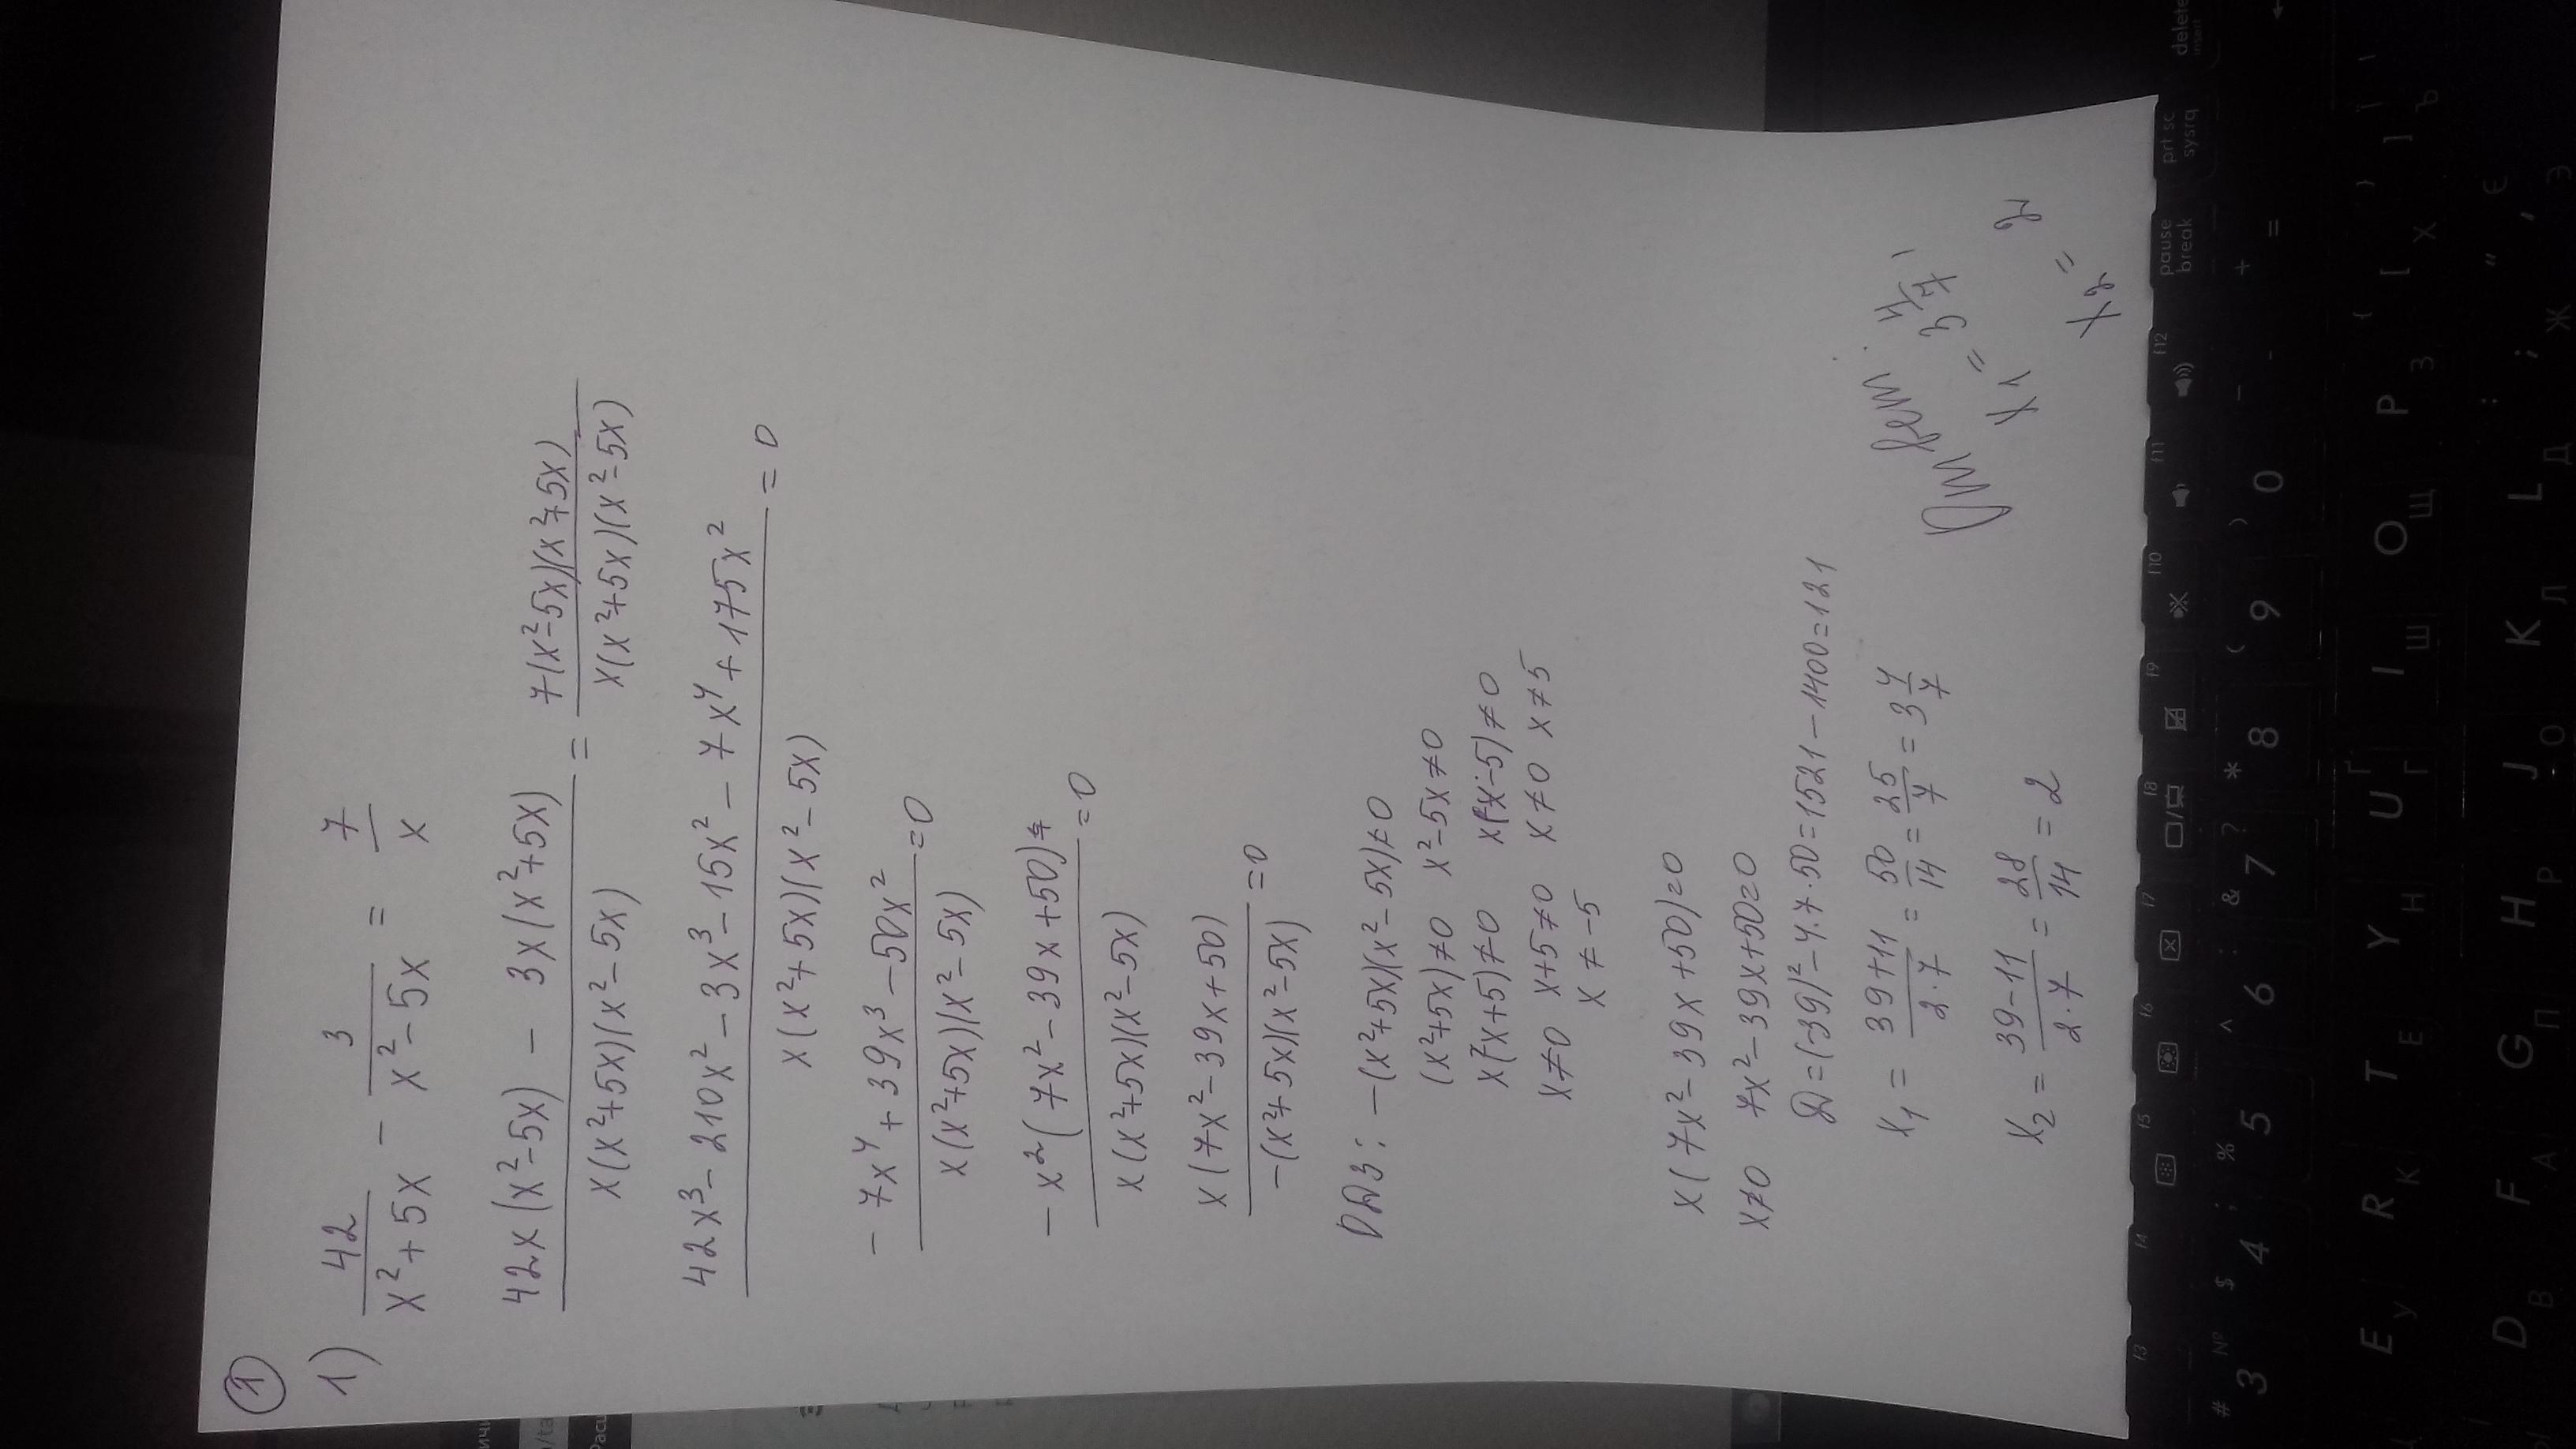 ①
1) 42/(x²+5x) − 3/(x²−5x) = 7/x
(42x(x²−5x) − 3x(x²+5x))/(x(x²+5x)(x²−5x)) = 7(x²−5x)(x²+5x)/(x(x²+5x)(x²−5x))
(42x³−210x²−3x³−15x²−7x⁴+175x²)/(x(x²+5x)(x²−5x)) = 0
(−7x⁴+39x³−50x²)/(x(x²+5x)(x²−5x)) = 0
−x²(7x²−39x+50)/(x(x²+5x)(x²−5x)) = 0
x(7x²−39x+50)/(−(x²+5x)(x²−5x)) = 0
ОДЗ: −(x²+5x)(x²−5x)≠0
(x²+5x)≠0 x²−5x≠0
x(x+5)≠0 x(x−5)≠0
x≠0 x+5≠0 x≠0 x≠5
x≠−5
x(7x²−39x+50)=0
x≠0 7x²−39x+50=0
D=(-39)²−4·7·50=1521−1400=121
x₁ = (39+11)/(2·7) = 50/14 = 25/7 = 3 4/7
x₂ = (39−11)/(2·7) = 28/14 = 2
Ответ:
x₁ = 3 4/7,
x₂ = 2
delete
insert
prt sc
sysrq
pause
break
f12
f11
f10
f9
f8
f7
f6
f5
f4
f3
# 3 № $ 4 ; % 5 : ^ 6 & 7 ? * 8 ( 9 ) 0 - =
E У R К T Е Y Н U Г I Ш O Щ P З [ Х ] Ъ
D В F А G П H Р J О K Л L Д ; Ж " Э